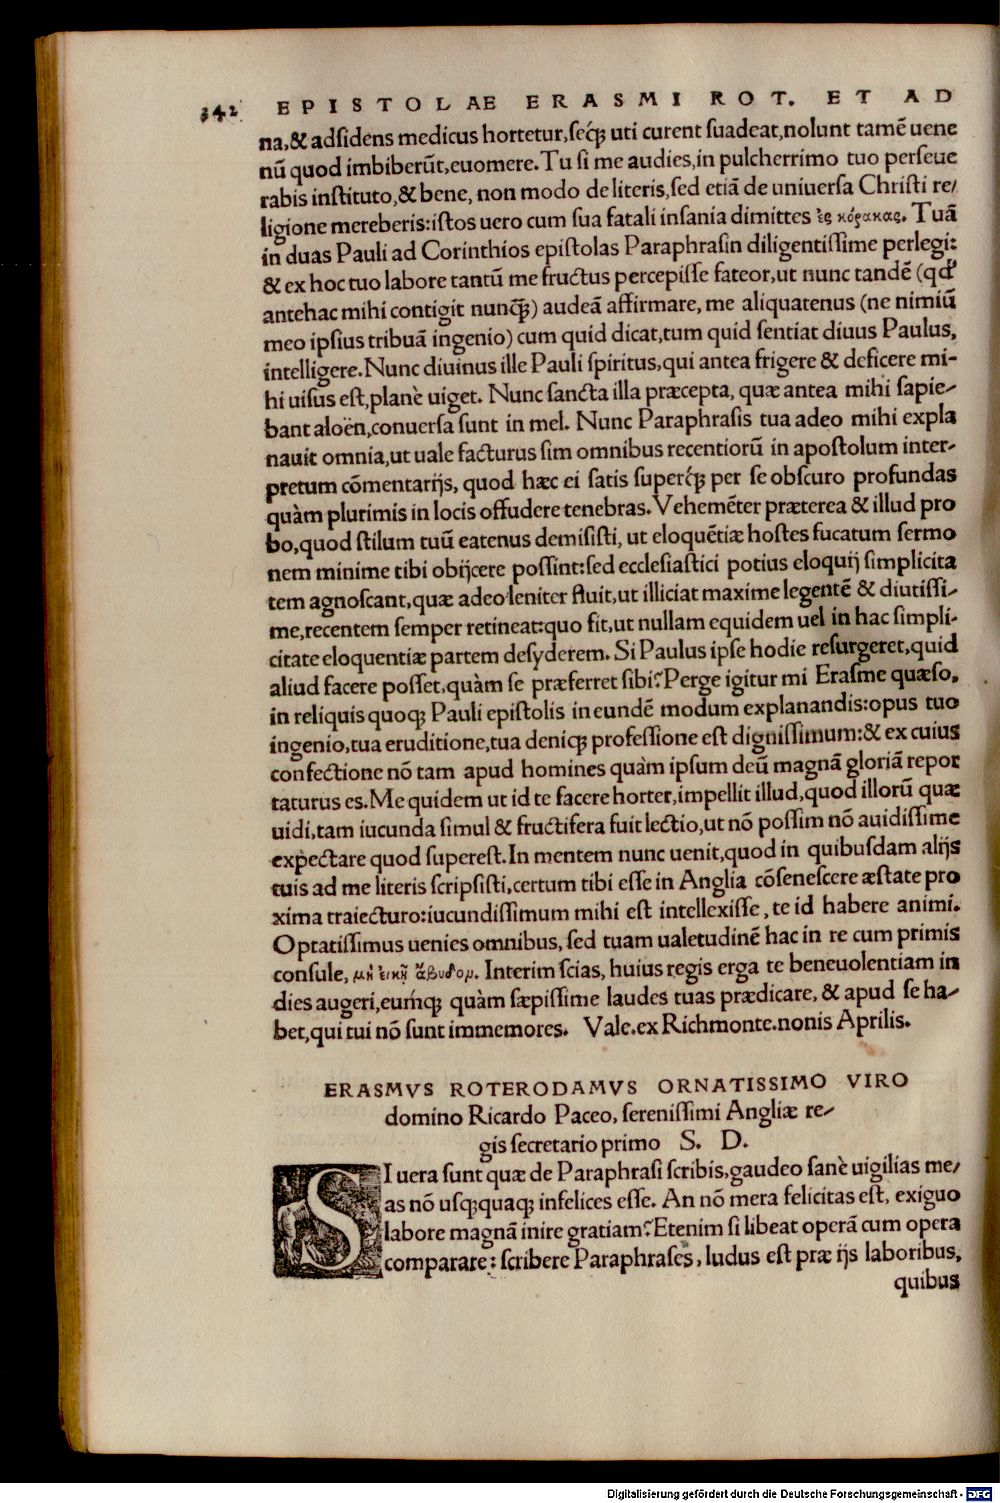 342 EPISTOLAE ERASMI ROT. ET AD
na,& adsidens medicus hortetur,secꝗ uti curent suadeat,nolunt tamē uene
nū quod imbiberūt,euomere.Tu si me audies,in pulcherrimo tuo perseue
rabis instituto,& bene, non modo de literis,sed etiā de uniuersa Christi re/
ligione mereberis:istos uero cum sua fatali insania dimittes ἐς κόρακας. Tuā
in duas Pauli ad Corinthios epistolas Paraphrasin diligentissime perlegi:
& ex hoc tuo labore tantū me fructus percepisse fateor,ut nunc tandē (qđ
antehac mihi contigit nunꝗ̃) audeā affirmare, me aliquatenus (ne nimiū
meo ipsius tribuā ingenio) cum quid dicat,tum quid sentiat diuus Paulus,
intelligere.Nunc diuinus ille Pauli spiritus,qui antea frigere & deficere mi-
hi uisus est,planè uiget. Nunc sancta illa præcepta, quæ antea mihi sapie/
bant aloën,conuersa sunt in mel. Nunc Paraphrasis tua adeo mihi expla
nauit omnia,ut uale facturus sim omnibus recentiorū in apostolum inter-
pretum cōmentarijs, quod hæc ei satis superꝗ́ per se obscuro profundas
quàm plurimis in locis offudere tenebras. Vehemēter præterea & illud pro
bo,quod stilum tuū eatenus demisisti, ut eloquētiæ hostes fucatum sermo
nem minime tibi obijcere possint:sed ecclesiastici potius eloquij simplicita
tem agnoscant,quæ adeo leniter fluit,ut illiciat maxime legentē & diutissi/
me,recentem semper retineat:quo fit,ut nullam equidem uel in hac simpli-
citate eloquentiæ partem desyderem. Si Paulus ipse hodie resurgeret,quid
aliud facere posset,quàm se præferret sibi? Perge igitur mi Erasme quæso,
in reliquis quoqꝫ Pauli epistolis in eundē modum explanandis:opus tuo
ingenio,tua eruditione,tua deniqꝫ professione est dignissimum:& ex cuius
confectione nō tam apud homines quàm ipsum deū magnā gloriā repor
taturus es.Me quidem ut id te facere horter,impellit illud,quod illorū quæ
uidi,tam iucunda simul & fructifera fuit lectio,ut nō possim nō auidissime
expectare quod superest.In mentem nunc uenit,quod in quibusdam alijs
tuis ad me literis scripsisti,certum tibi esse in Anglia cōsenescere æstate pro
xima traiecturo:iucundissimum mihi est intellexisse, te id habere animi.
Optatissimus uenies omnibus, sed tuam ualetudinē hac in re cum primis
consule, μὴ εἰκῇ ἄβυδομ. Interim scias, huius regis erga te beneuolentiam in
dies augeri,eumꝗ́ quàm sæpissime laudes tuas prædicare, & apud se ha/
bet,qui tui nō sunt immemores. Vale.ex Richmonte.nonis Aprilis.
ERASMVS ROTERODAMVS ORNATISSIMO VIRO
domino Ricardo Paceo, serenissimi Angliæ re/
gis secretario primo S. D.
SI uera sunt quæ de Paraphrasi scribis,gaudeo sanè uigilias me/
as nō usqꝫquaqꝫ infelices esse. An nō mera felicitas est, exiguo
labore magnā inire gratiam? Etenim si libeat operā cum opera
comparare: scribere Paraphrases, ludus est præ ijs laboribus,
quibus
Digitalisierung gefördert durch die Deutsche Forschungsgemeinschaft - DFG